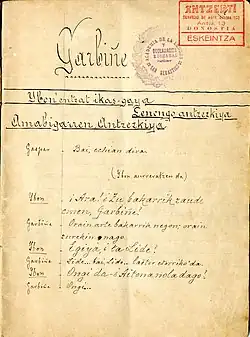 ANTZERTI
DONOSTIA
ESKEINTZA
Garbiñe
Ybon'entzat ikas-gaya
Lenengo antzezkiya
Amabigarren Antzezkiya
Gaspar — Bai, etxian dira.
(Ybon aurreratzen da)
Ybon — ¡Ara! ¿Zu bakarrik zaude
emen, Garbiñe!
Garbiñe — Orain arte bakarrik negon, orain
zurekin nago.
Ybon — Egiya, ¿ta Lide?
Garbiñe — Lide.. bai, Lide.. laster etorriko da.
Ybon — Ongi da ¿Aitona nola dago?
Garbiñe — Ongi..